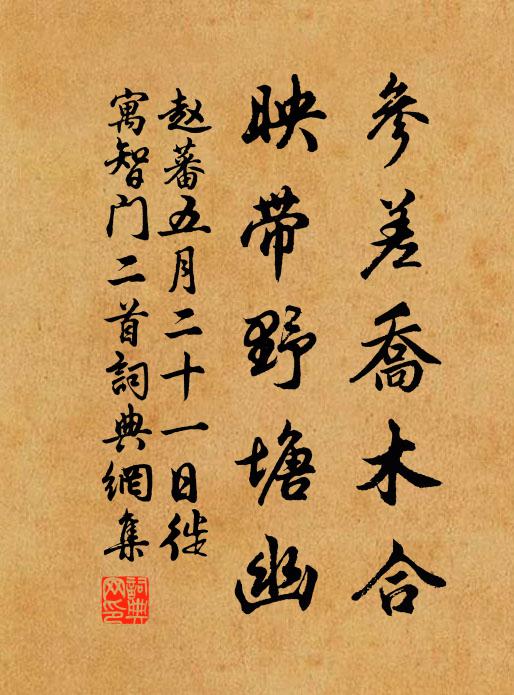 參差喬木合
映带野塘幽
赵蕃五月二十一日徙
寓智门二首詞典網集
詞典
网印